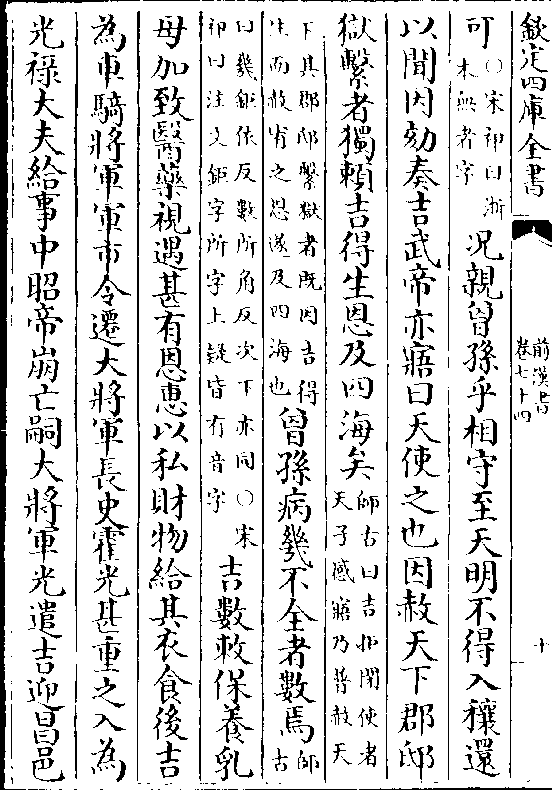 欽定四庫全書
前漢書
卷七十四
十
可〇宋祁曰浙
本無者字
况親曾孫乎相守至天明不得入穰還
以聞因劾奏吉武帝亦寤曰天使之也因赦天下郡邸
獄繫者獨賴吉得生恩及四海矣師古曰吉拒閉使者
天子感寤乃普赦天
下其郡邸繫獄者既因吉得
生而赦宥之恩遂及四海也
曾孫病幾不全者數焉師
古
曰幾鉅依反數所角反次下亦同〇宋
祁曰注文鉅字所字上疑皆有音字
吉數敕保養乳
母加致醫藥視遇甚有恩惠以私財物給其衣食後吉
為車騎將軍軍市令遷大將軍長史霍光甚重之入為
光祿大夫給事中昭帝崩亡嗣大將軍光遣吉迎昌邑